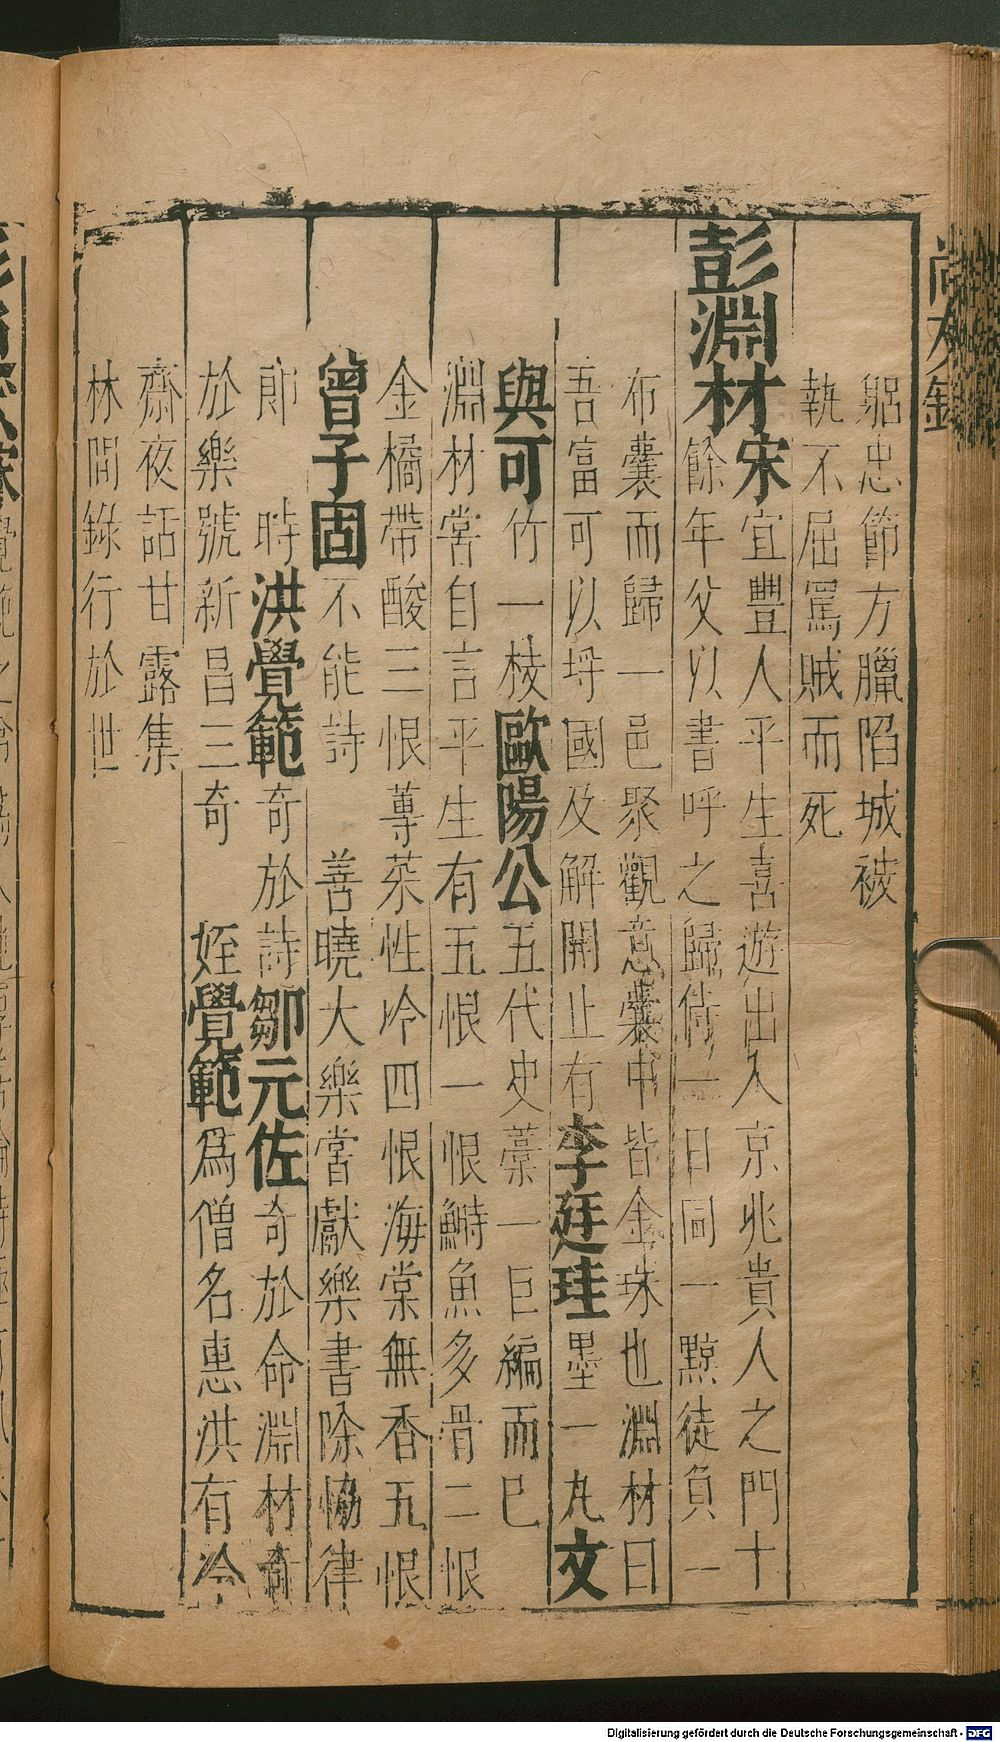 尚友錄
忠節方臘陷城被
執不屈罵賊而死
彭淵材宋宜豐人平生喜遊出入京兆貴人之門十
餘年父以書呼之歸侍一日同一黥徒負一
布囊而歸一邑聚觀意囊中皆金珠也淵材曰
吾富可以埒國及解開止有李廷珪墨一丸文
與可竹一枝歐陽公五代史藁一巨編而已
淵材嘗自言平生有五恨一恨鰣魚多骨二恨
金橘帶酸三恨蓴菜性冷四恨海棠無香五恨
曾子固不能詩　善曉大樂嘗獻樂書除協律
郎　時洪覺範奇於詩鄒元佐奇於命淵材奇
於樂號新昌三奇　姪覺範爲僧名惠洪有冷
齋夜話甘露集
林間錄行於世
Digitalisierung gefördert durch die Deutsche Forschungsgemeinschaft - DFG